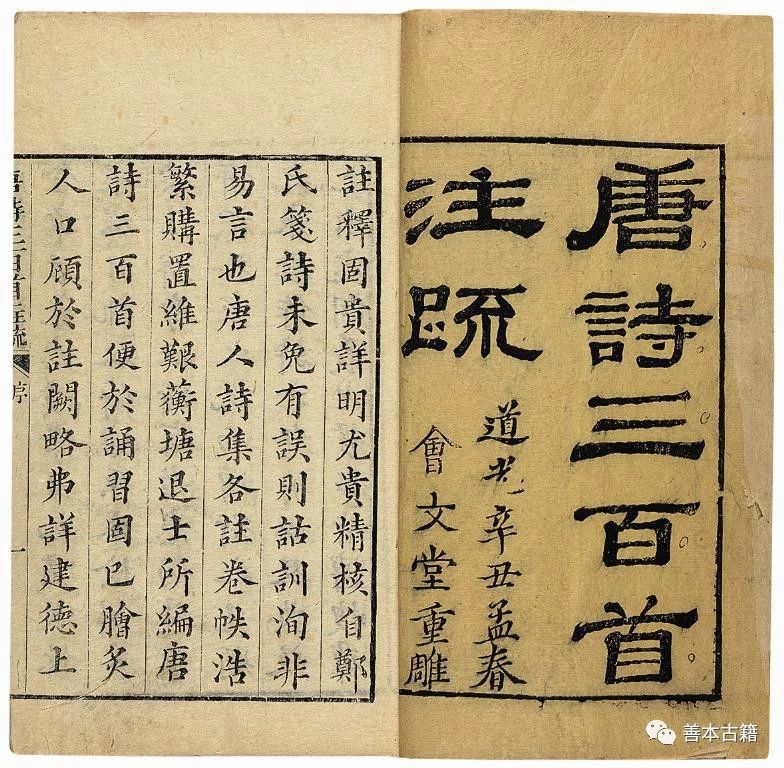 唐詩三百首
注疏
道光辛丑孟春
會文堂重雕
註釋固貴詳明尤貴精核自鄭
氏箋詩未免有誤則詁訓洵非
易言也唐人詩集各註卷帙浩
繁購置維艱蘅塘退士所編唐
詩三百首便於誦習固已膾炙
人口顧於註闕略弗詳建德上
唐詩三百首注疏 序 一
善本古籍